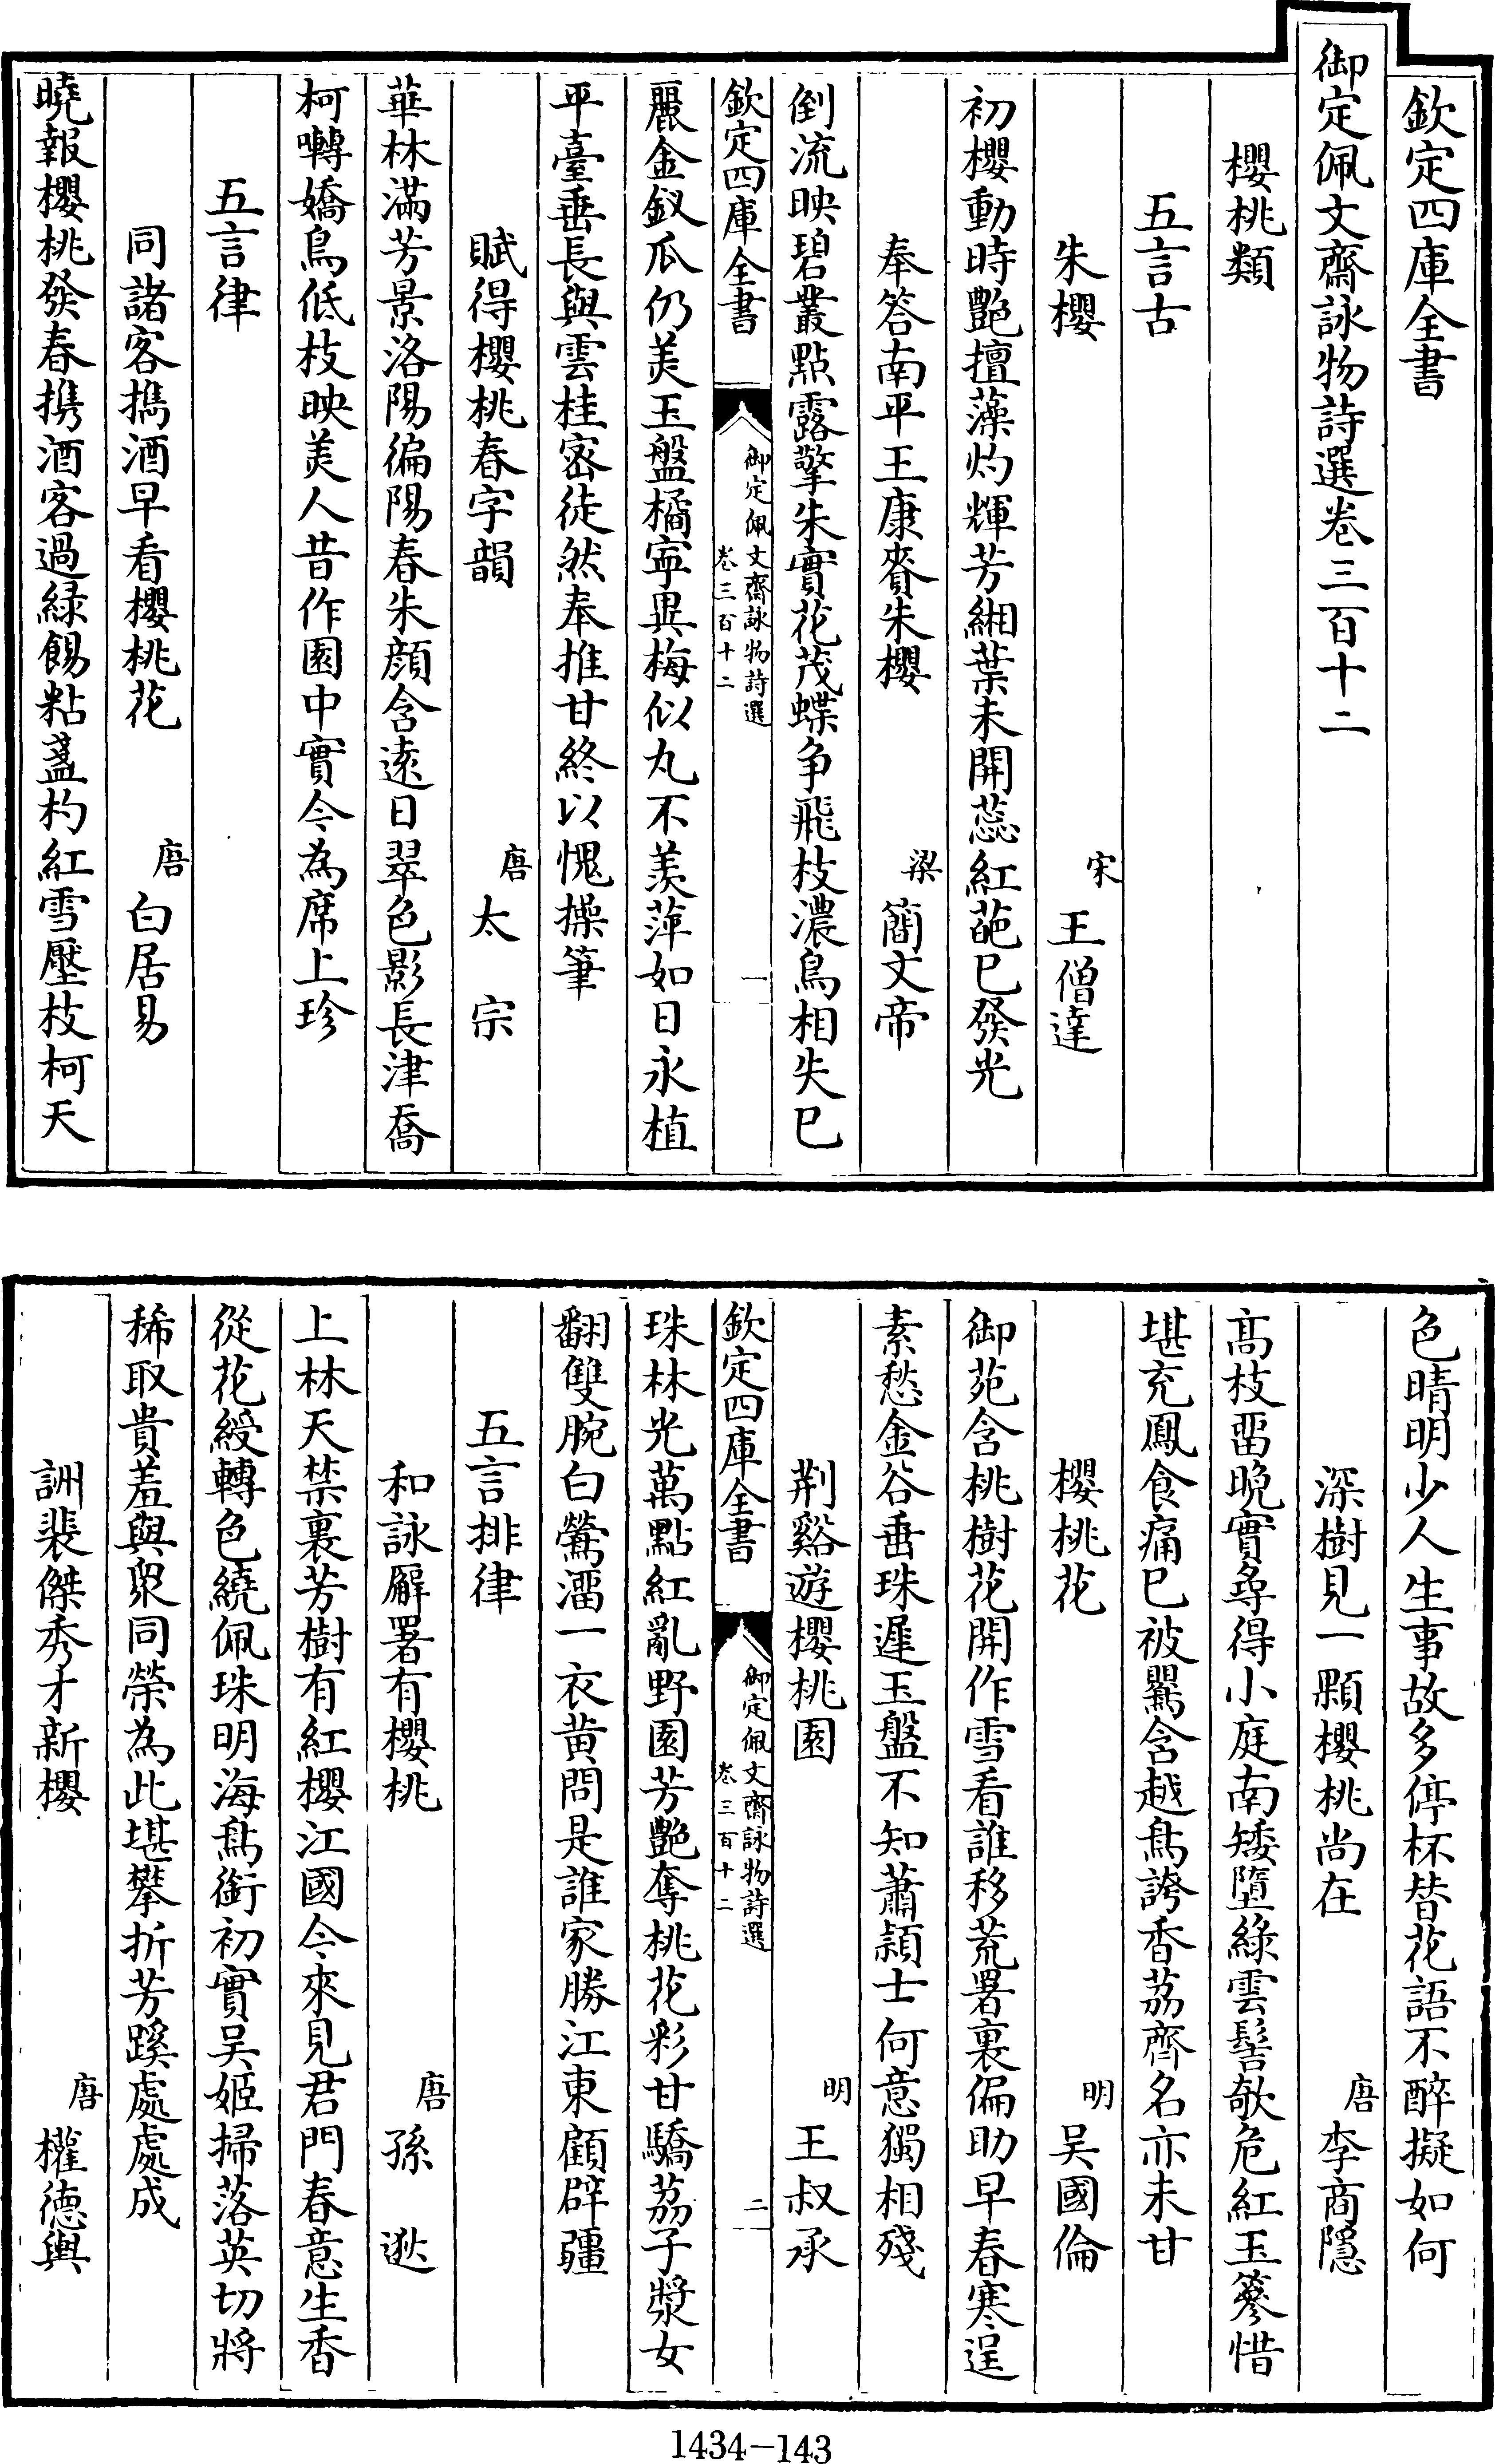 欽定四庫全書
御定佩文齋詠物詩選卷三百十二
櫻桃類
五言古
朱櫻 宋 王僧達
初櫻動時艶擅藻灼輝芳緗葉未開蕊紅葩已發光
奉答南平王康賚朱櫻 梁 簡文帝
倒流映碧叢點露擎朱實花茂蝶争飛枝濃鳥相失已
欽定四庫全書 御定佩文齋詠物詩選 卷三百十二 一
麗金釵瓜仍美玉盤橘寧異梅似丸不羨萍如日永植
平臺垂長與雲桂密徒然奉推甘終以愧操筆
賦得櫻桃春字韻 唐 太宗
華林滿芳景洛陽徧陽春朱顔含遠日翠色影長津喬
柯囀嬌鳥低枝映美人昔作園中實今為席上珍
五言律
同諸客擕酒早看櫻桃花 唐 白居易
曉報櫻桃發春携酒客過綠餳粘盞杓紅雪壓枝柯天
色晴明少人生事故多停杯替花語不醉擬如何
深樹見一顆櫻桃尚在 唐 李商隱
髙枝畱晚實尋得小庭南矮墮綠雲髻欹危紅玉篸惜
堪充鳳食痛已被鸎含越鳥誇香荔齊名亦未甘
櫻桃花 明 吴國倫
御苑含桃樹花開作雪看誰移荒署裏偏助早春寒逞
素愁金谷垂珠遲玉盤不知蕭頴士何意獨相殘
荆谿遊櫻桃園 明 王叔承
欽定四庫全書 御定佩文齋詠物詩選 卷三百十二 二
珠林光萬點紅亂野園芳艶奪桃花彩甘驕荔子漿女
翻雙腕白鶯溜一衣黄問是誰家勝江東顧辟疆
五言排律
和詠廨署有櫻桃 唐 孫逖
上林天禁裏芳樹有紅櫻江國今來見君門春意生香
從花綬轉色繞佩珠明海鳥銜初實吴姬掃落英切將
稀取貴羞與衆同榮為此堪攀折芳蹊處處成
詶裴傑秀才新櫻 唐 權德輿
1434-143